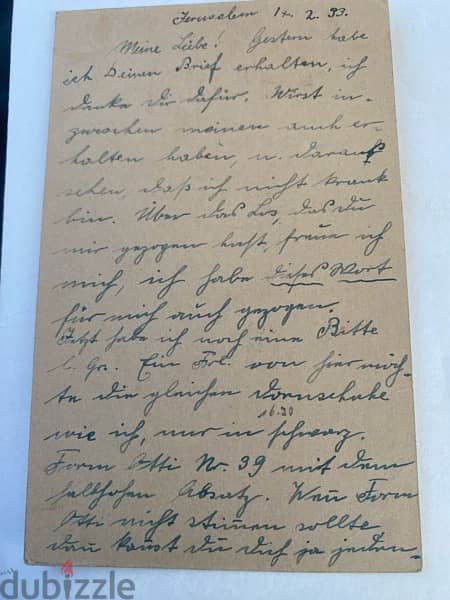 Jerusalem 14. 2. 33.
Meine Liebe! Gestern habe
ich Deinen Brief erhalten, ich
danke Dir dafür. Wirst in-
zwischen meinen auch er-
halten haben, u. daraus
sehen, daß ich nicht krank
bin. Über das Los, das du
mir gezogen hast, freue ich
mich, ich habe dieses Wort
für mich auch gezogen.
Jetzt habe ich noch eine Bitte
l. Gr. Ein Frl. von hier möch-
te die gleichen Dornschuhe
16.20
wie ich, nur in schwarz.
Form Otti Nr. 39 mit dem
halbhohen Absatz. Wen̄ Form
Otti nicht stim̄en sollte
dan̄ kanst du dich ja jeden-
dubizzle